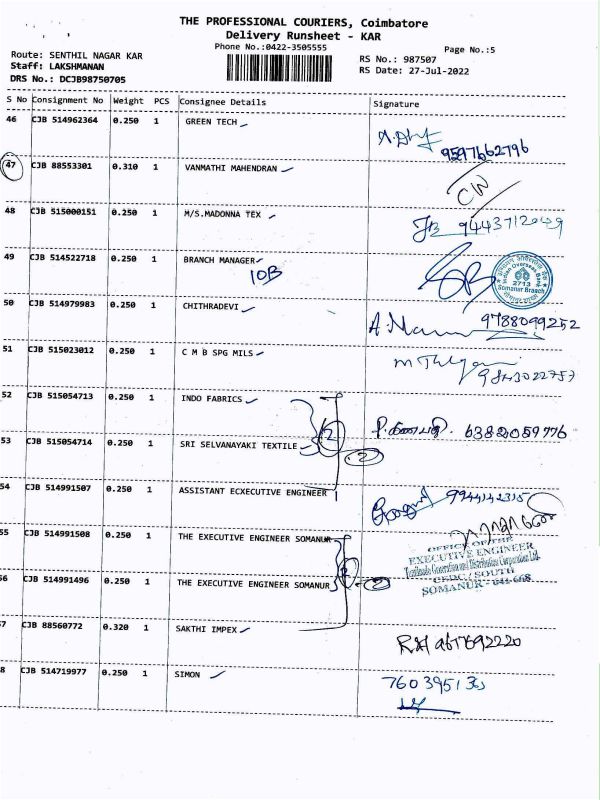 THE PROFESSIONAL COURIERS, Coimbatore
Delivery Runsheet - KAR
Phone No.:0422-3505555
Page No.:5
Route: SENTHIL NAGAR KAR
Staff: LAKSHMANAN
DRS No.: DCJB98750705
RS No.: 987507
RS Date: 27-Jul-2022
S No Consignment No Weight PCS Consignee Details Signature
46 CJB 514962364 0.250 1 GREEN TECH
9597662796
47 CJB 88553301 0.310 1 VANMATHI MAHENDRAN
48 CJB 515000151 0.250 1 M/S.MADONNA TEX
9443712049
49 CJB 514522718 0.250 1 BRANCH MANAGER
IOB
2713
Somanur Branch
50 CJB 514979983 0.250 1 CHITHRADEVI
9788099252
51 CJB 515023012 0.250 1 C M B SPG MILS
9843022757
52 CJB 515054713 0.250 1 INDO FABRICS
2
6382059776
53 CJB 515054714 0.250 1 SRI SELVANAYAKI TEXTILE
2
54 CJB 514991507 0.250 1 ASSISTANT ECXECUTIVE ENGINEER
9944142315
55 CJB 514991508 0.250 1 THE EXECUTIVE ENGINEER SOMANUR
OFFICE OF THE
EXECUTIVE ENGINEER
Tamilnadu Generation and Distribution Corporation Ltd.
CEDC / SOUTH
SOMANUR - 641 668
56 CJB 514991496 0.250 1 THE EXECUTIVE ENGINEER SOMANUR
2
2
57 CJB 88560772 0.320 1 SAKTHI IMPEX
58 CJB 514719977 0.250 1 SIMON